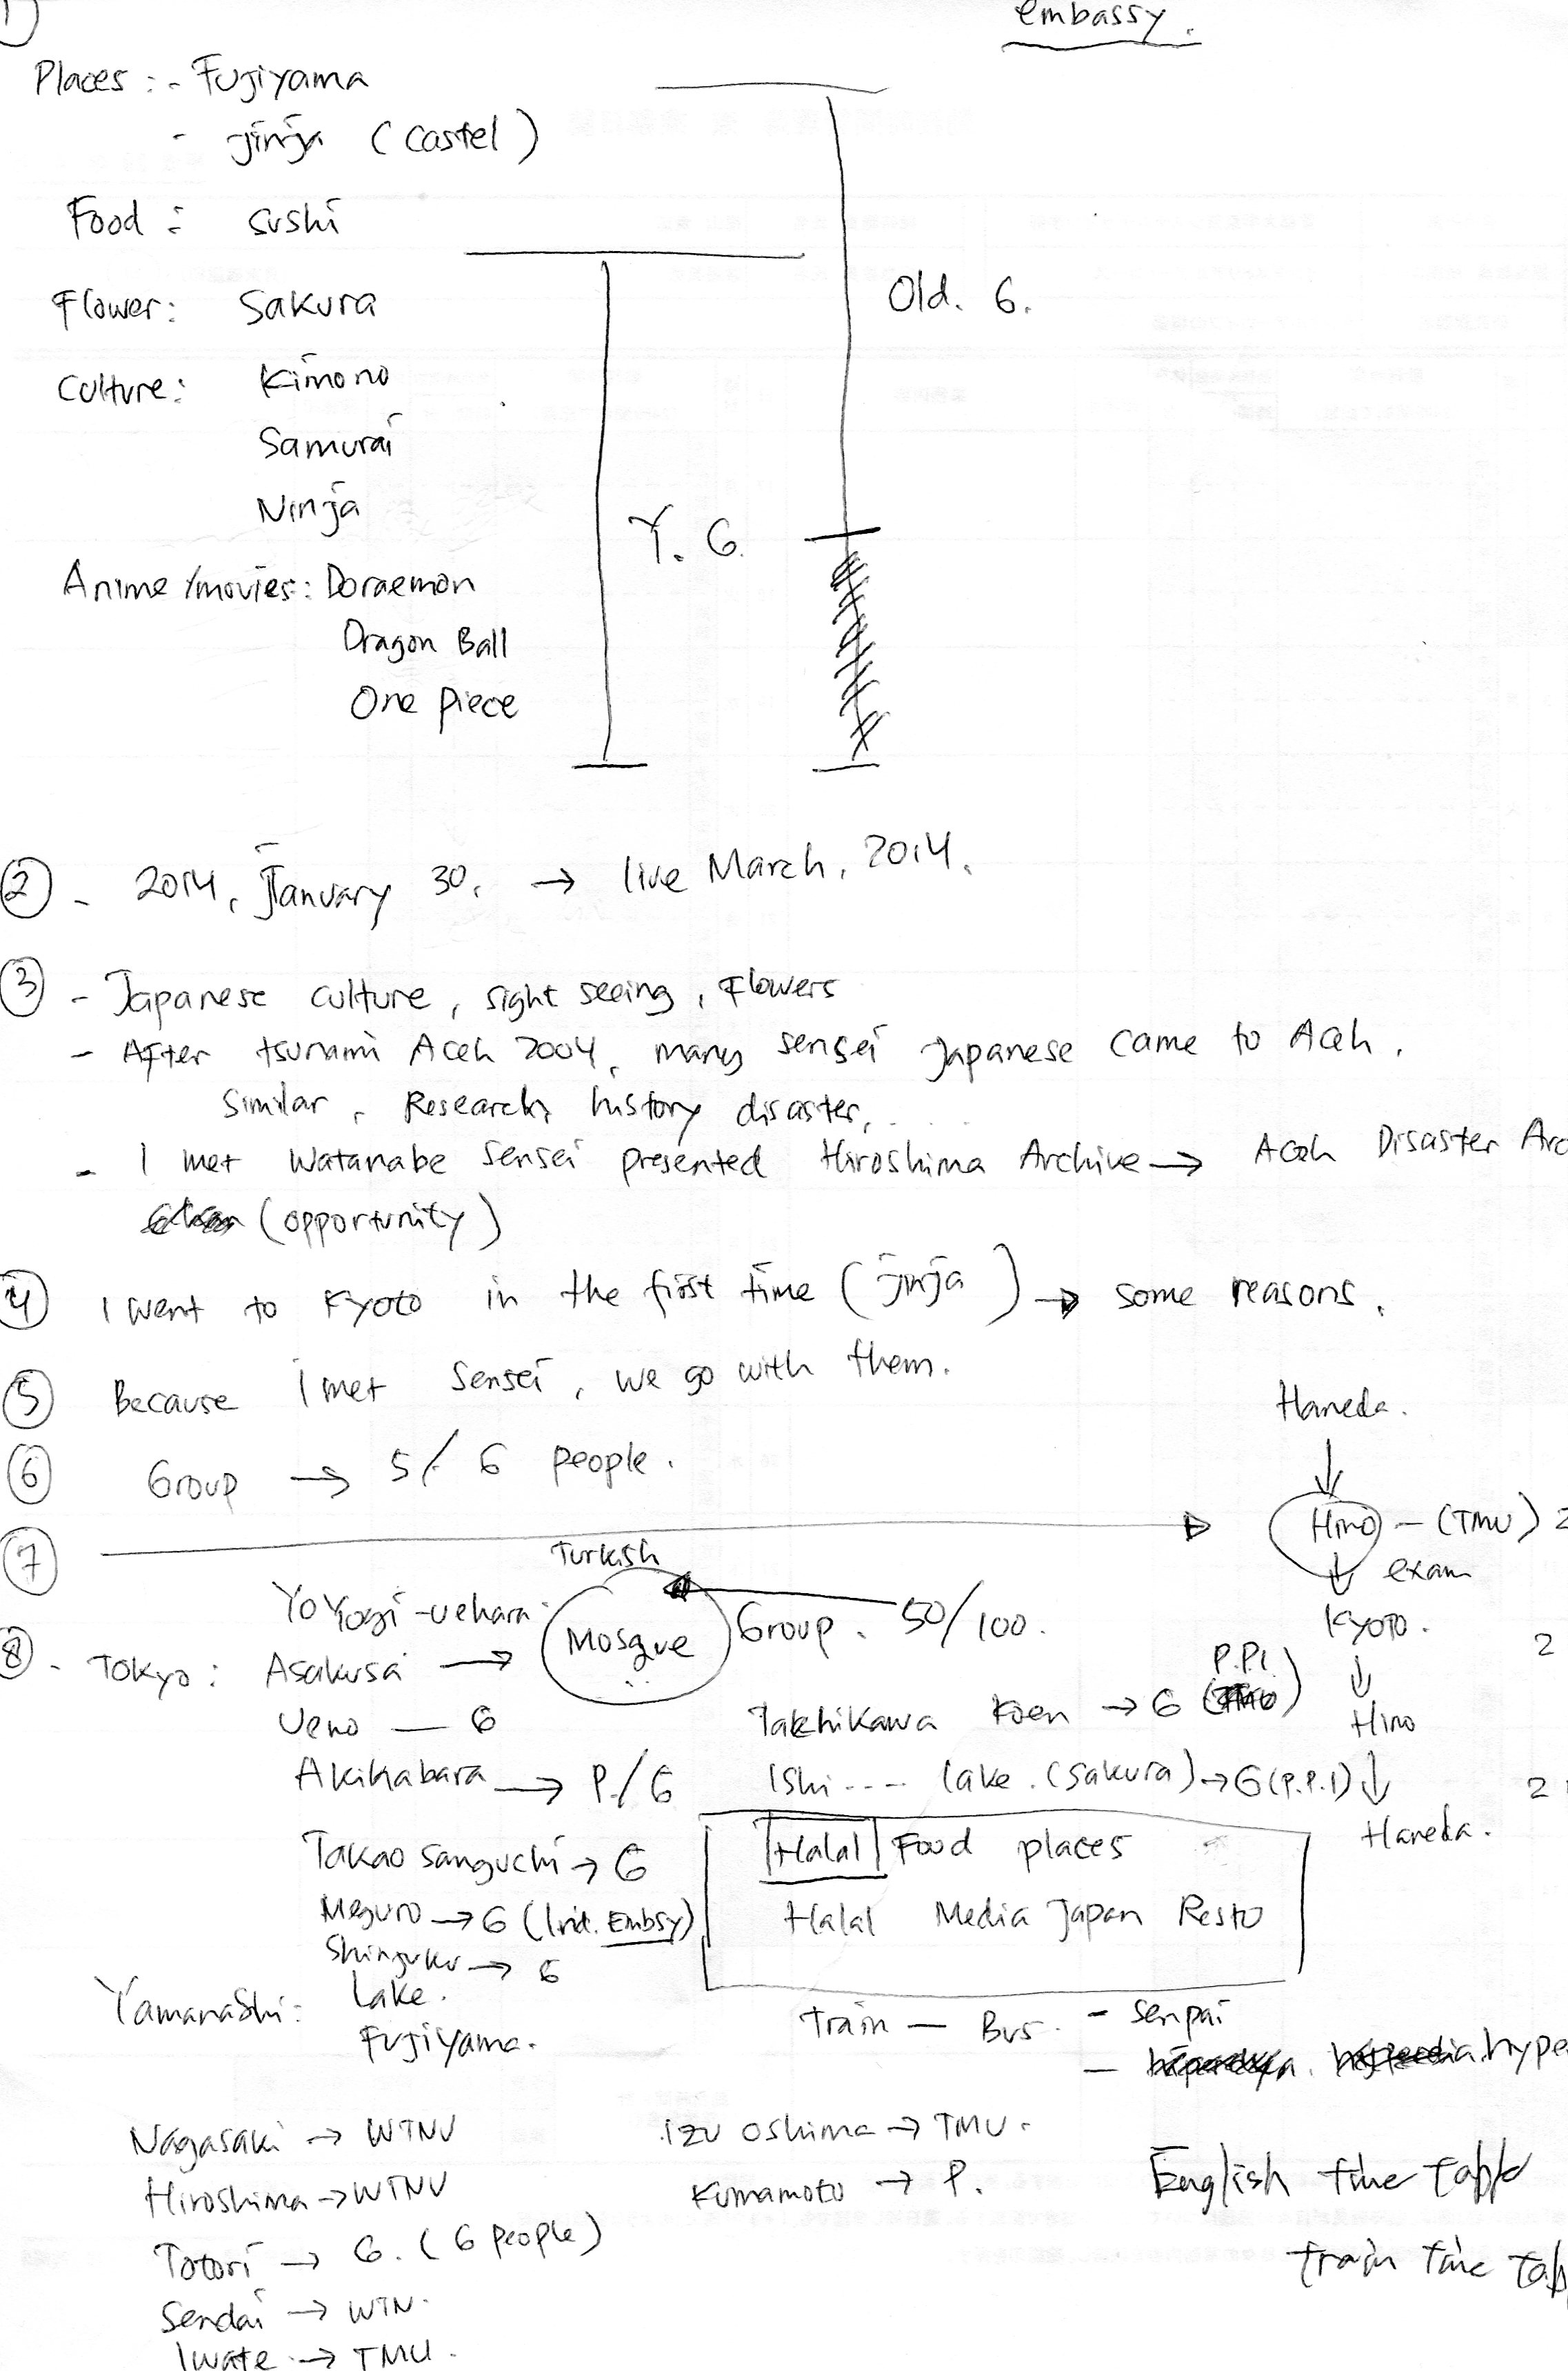 1
embassy.
Places : - Fujiyama
- jinja (castel)
Food : sushi
Flower: Sakura
Culture: Kimono
Samurai
Ninja
Anime/movies: Doraemon
Dragon Ball
One Piece
Old. G.
Y. G.
2 - 2014, January 30. → live March, 2014.
3 - Japanese culture, sight seeing, Flowers
- After tsunami Aceh 2004, many sensei Japanese came to Aceh.
Similar, Research, history disaster, .....
- I met Watanabe Sensei presented Hiroshima Archive → Aceh Disaster Arc
(opportunity)
4 I went to Kyoto in the first time (jinja) → some reasons.
5 Because I met Sensei, we go with them.
6 Group → 5/6 people.
7
Haneda.
↓
Hino - (TMU) 2
↓ exam
Kyoto.
↓
Hino
↓
Haneda.
2
2
Turkish
Yoyogi-uehara.
8 - Tokyo: Asakusa → Mosque Group. 50/100.
Ueno — G
Akihabara → P/G
Takao sanguchi → G
Meguro → G (Ind. Embsy)
Shinjuku → G
Takhikawa Koen → G (P.P.I)
Ishi---- lake. (Sakura) → G (P.P.I)
Halal Food places
Halal Media Japan Resto
Yamanashi: Lake.
Fujiyama.
Train — Bus. - senpai
- hype
Nagasaki → WTNV
Hiroshima → WTNV
Totori → G. (6 people)
Sendai → WTN.
Iwate → TMU.
Izu Oshima → TMU.
Kumamoto → P.
English time table
train time tab